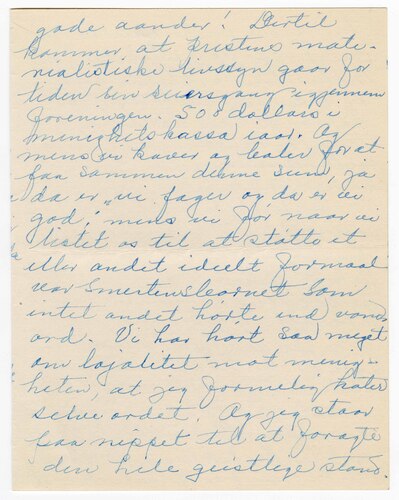 gode aander! Dertil
kommer at Kristins mate-
rialistiske livssyn gaar for
tiden sin seiersgang igjennem
foreningen. 508 dollars i
menighets kassa iaar. Og
mens vi kaver og baler for at
faa sammen denne sum, ja
da er „vi fager og da er vi
god,” mens vi for naar vi
listet os til at støtte et
eller andet ideelt formaal
var Smertenslearnet som
intet andet hørte end vonde
ord. Vi har hørt saa meget
om lojalitet mot menig-
heten, at jeg formelig hater
selve ordet. Og jeg staar
paa nippet til at foragte
den hele geistlige stand.